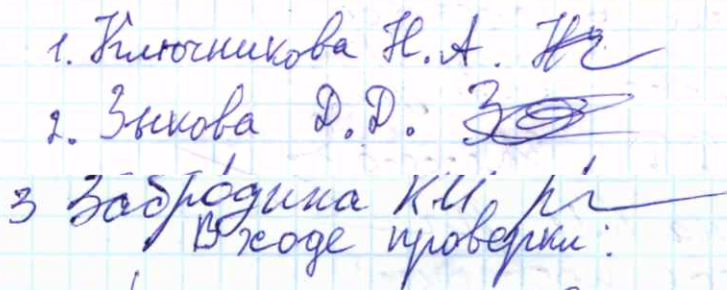 1. Ключникова Н.А.
2. Зыкова Д.Д.
3 Забродина К.И.
В ходе проверки: